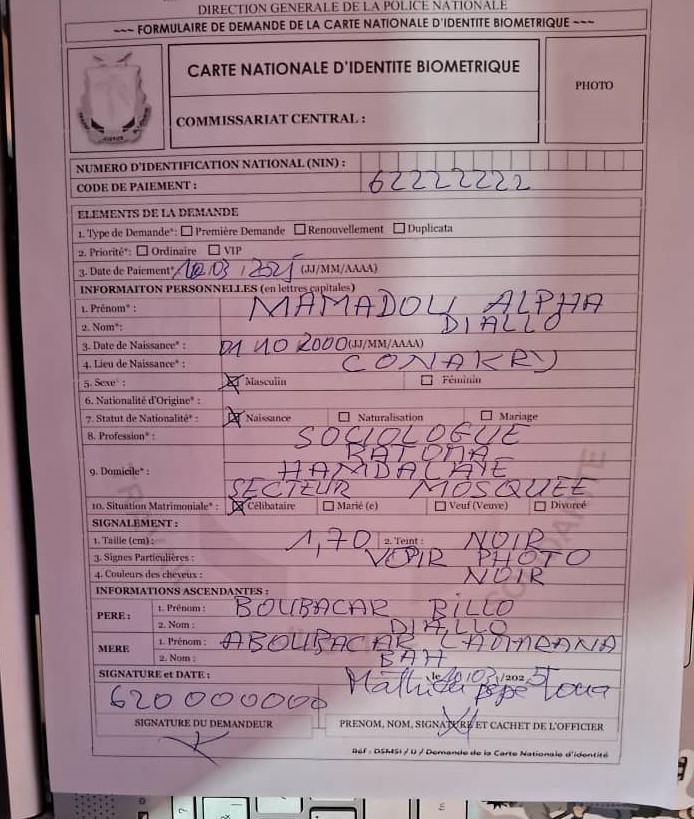 DIRECTION GENERALE DE LA POLICE NATIONALE
~~~ FORMULAIRE DE DEMANDE DE LA CARTE NATIONALE D'IDENTITE BIOMETRIQUE ~~~
CARTE NATIONALE D'IDENTITE BIOMETRIQUE
PHOTO
COMMISSARIAT CENTRAL :
NUMERO D'IDENTIFICATION NATIONAL (NIN) :
CODE DE PAIEMENT : 62222222
ELEMENTS DE LA DEMANDE
1. Type de Demande* : Première Demande Renouvellement Duplicata
2. Priorité* : Ordinaire VIP
3. Date de Paiement* 10/03/2025 (JJ/MM/AAAA)
INFORMAITON PERSONNELLES (en lettres capitales)
1. Prénom* : MAMADOU ALPHA
2. Nom* : DIALLO
3. Date de Naissance* : 01 10 2000 (JJ/MM/AAAA)
4. Lieu de Naissance* : CONAKRY
5. Sexe* : Masculin Féminin
6. Nationalité d'Origine* :
7. Statut de Nationalité* : Naissance Naturalisation Mariage
8. Profession* : SOCIOLOGUE
RATOMA
9. Domicile* : HAMDALAYE
SECTEUR MOSQUEE
10. Situation Matrimoniale* : Célibataire Marié (e) Veuf (Veuve) Divorcé
SIGNALEMENT :
1. Taille (cm) : 1,70 2. Teint : NOIR
3. Signes Particulières : VOIR PHOTO
4. Couleurs des cheveux : NOIR
INFORMATIONS ASCENDANTES :
PERE : 1. Prénom : BOUBACAR BILLO
2. Nom : DIALLO
MERE 1. Prénom : ABOUBACAR CAMARANA
2. Nom : BAH
SIGNATURE et DATE : le 10/03/2025
620000000
SIGNATURE DU DEMANDEUR
PRENOM, NOM, SIGNATURE ET CACHET DE L'OFFICIER
Réf : DSMSI / IJ / Demande de la Carte Nationale d'identité